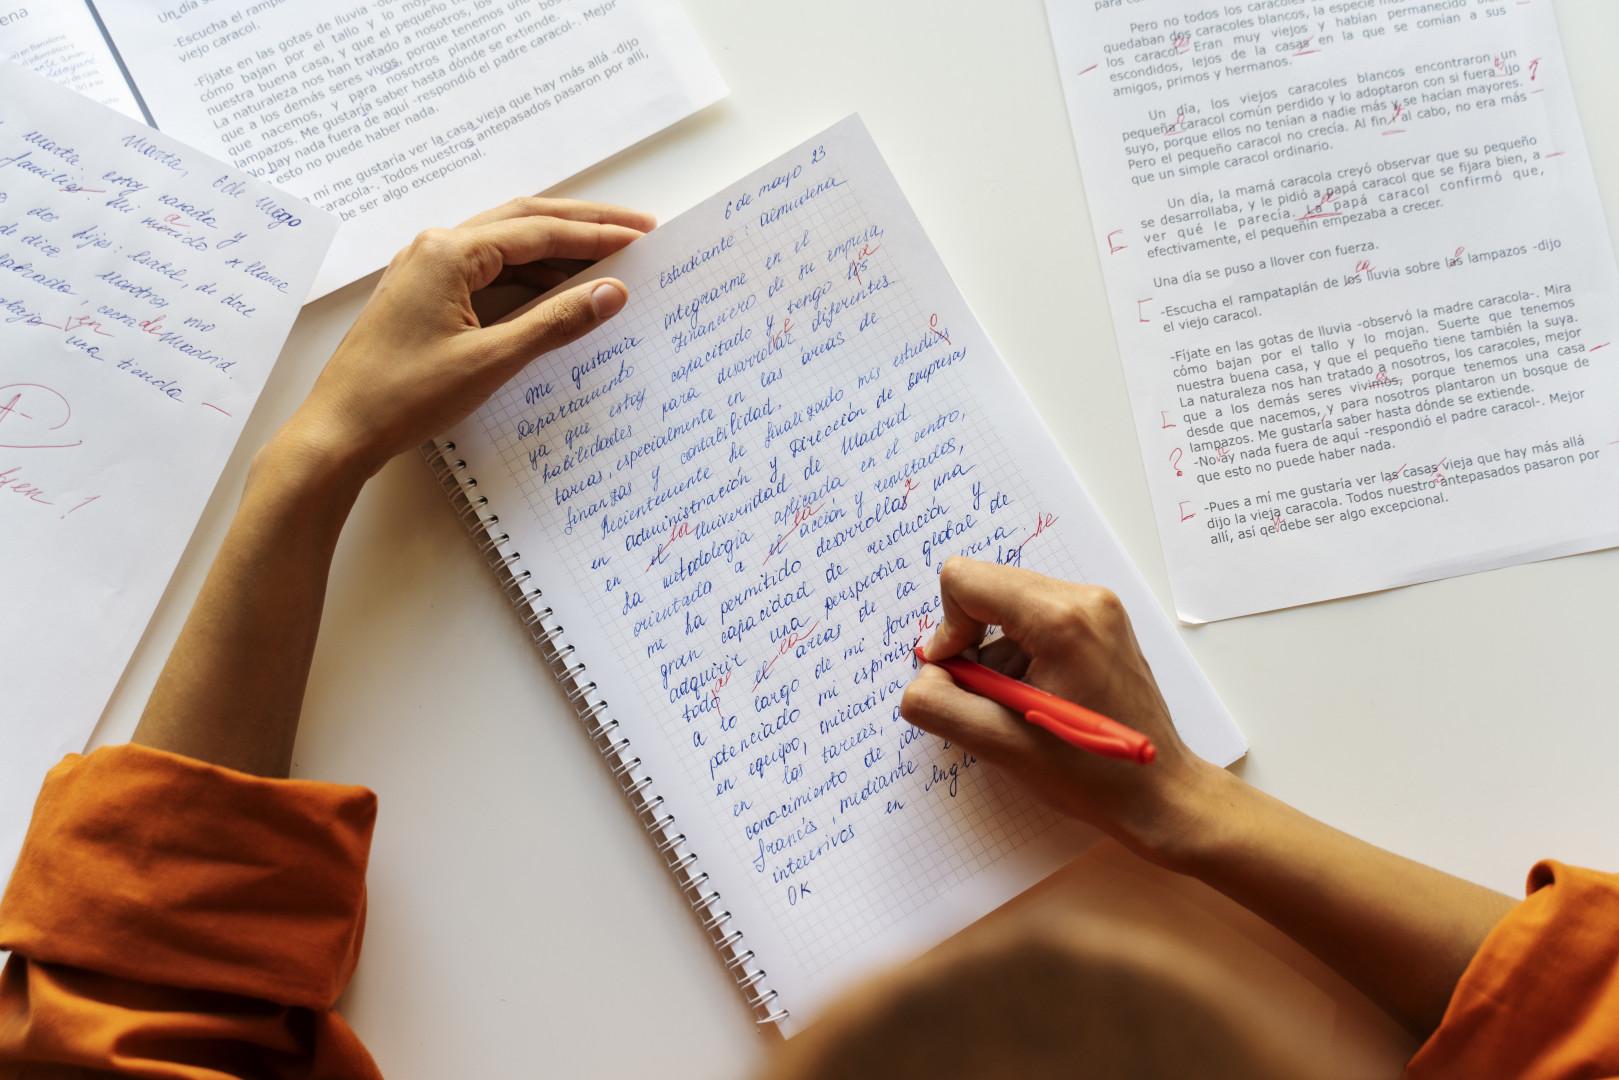 ena
Un día se
-Escucha el rampa
viejo caracol.
-Fíjate en las gotas de lluvia -ob
cómo bajan por el tallo y lo mojan.
nuestra buena casa, y que el pequeño tiene
La naturaleza nos han tratado a nosotros, los
que a los demás seres vivos, porque tenemos una
nacemos, y para nosotros plantaron un bos
lampazos. Me gustaría saber hasta dónde se extiende.
-No hay nada fuera de aquí -respondió el padre caracol-. Mejor
esto no puede haber nada.
a mí me gustaría ver la casa vieja que hay más allá -dijo
caracola-. Todos nuestros antepasados pasaron por allí,
be ser algo excepcional.
Marta, 6 de mayo
marta. estoy casada y
familia. Mi marido a se llama
dos hijos: Isabel, de doce
de diez. Nosotros
, cerca de Madrid.
en una tienda
A-
6 de mayo 23
Estudiante: Almudena
Me gustaría integrarme en el
Departamento Financiero de su empresa,
ya que estoy capacitado y tengo las
habilidades para desarrollar diferentes
tareas, especialmente en las áreas de
finanzas y contabilidad.
Recientemente he finalizado mis estudios
en administración y Dirección de Empresas
en el la Universidad de Madrid.
La metodología aplicada en el centro,
orientada a el la acción y resultados,
me ha permitido desarrollar una
gran capacidad de resolución y
adquirir una perspectiva global de
todo as el ea áreas de la empresa.
a lo largo de mi formac hoj he
potenciado mi espiritu
en equipo, iniciativa
en las tareas, a
conocimiento de idi
francés, mediante
intensivos en Inglé
OK
para co
Pero no todos los caracoles blancos, la especie
quedaban dos caracoles blancos, la especie m
los caracol. Eran muy viejos y habían permanecido
escondidos, lejos de la casas en la que se comían a sus
amigos, primos y hermanos.
Un día, los viejos caracoles blancos encontraron un
pequeña caracol común perdido y lo adoptaron con si fuera ijo
suyo, porque ellos no tenían a nadie más y se hacían mayores.
Pero el pequeño caracol no crecía. Al fin y al cabo, no era más
que un simple caracol ordinario.
Un día, la mamá caracola creyó observar que su pequeño
se desarrollaba, y le pidió a papá caracol que se fijara bien, a
ver qué le parecía. La papá caracol confirmó que,
efectivamente, el pequeñín empezaba a crecer.
Una día se puso a llover con fuerza.
-Escucha el rampataplán de los lluvia sobre las lampazos -dijo
el viejo caracol.
-Fíjate en las gotas de lluvia -observó la madre caracola-. Mira
cómo bajan por el tallo y lo mojan. Suerte que tenemos
nuestra buena casa, y que el pequeño tiene también la suya.
La naturaleza nos han tratado a nosotros, los caracoles, mejor
que a los demás seres vivimos, porque tenemos una casa
desde que nacemos, y para nosotros plantaron un bosque de
lampazos. Me gustaría saber hasta dónde se extiende.
-No ay nada fuera de aquí -respondió el padre caracol-. Mejor
que esto no puede haber nada.
-Pues a mí me gustaría ver las casas vieja que hay más allá
dijo la vieja caracola. Todos nuestro antepasados pasaron por
allí, así qe debe ser algo excepcional.